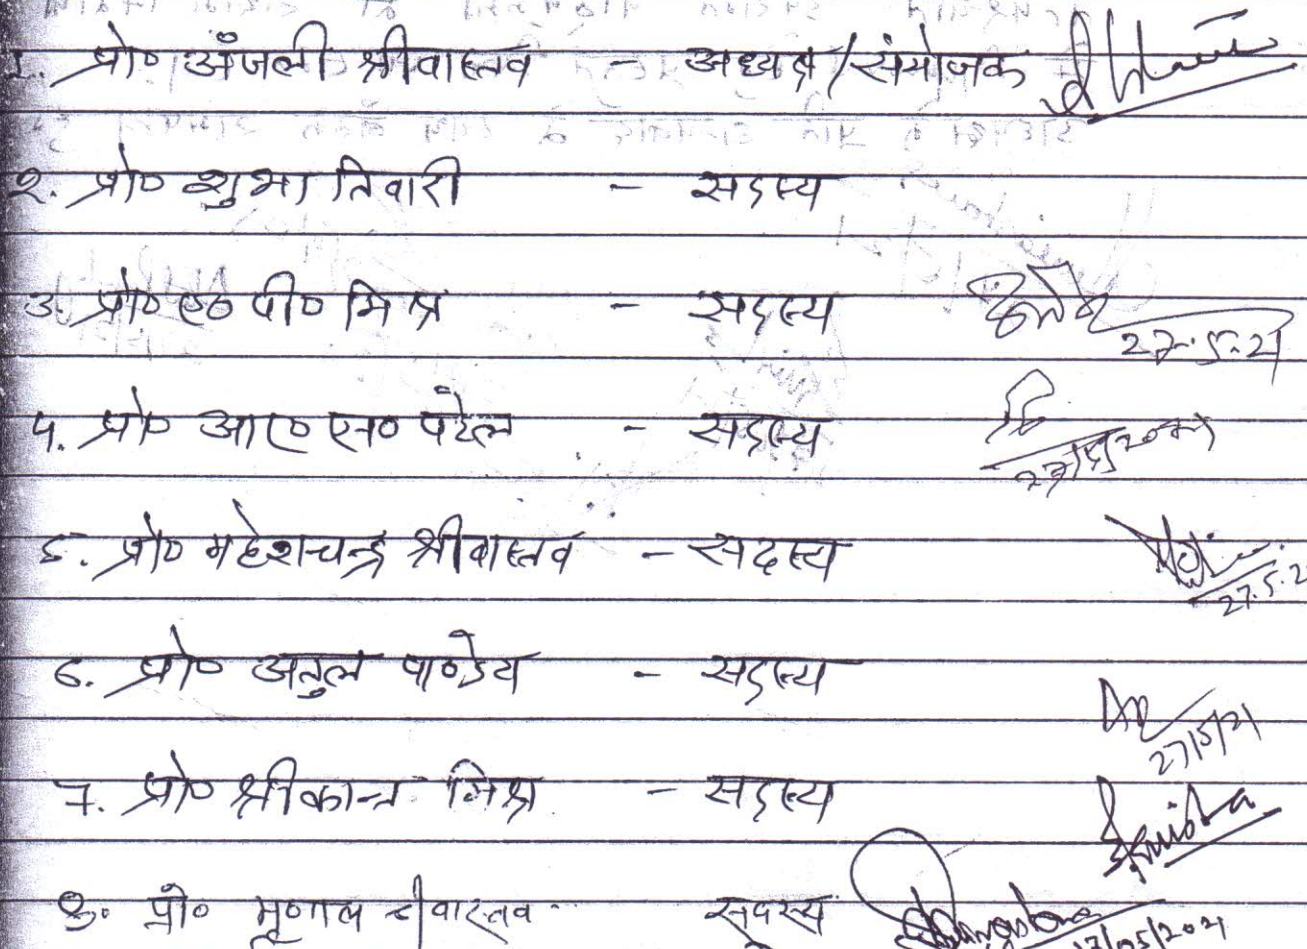 १. प्रो० अंजली श्रीवास्तव - अध्यक्ष/संयोजक
२. प्रो० शुभा तिवारी - सदस्य
३. प्रो० ए० पी० मिश्र - सदस्य
27.5.21
४. प्रो० आर० एन० पटेल - सदस्य
27/5/2021
५. प्रो० महेशचन्द्र श्रीवास्तव - सदस्य
27.5.2
६. प्रो० अतुल पाण्डेय - सदस्य
27/5/21
७. प्रो० श्रीकान्त मिश्र - सदस्य
८. प्रो० मृणाल श्रीवास्तव सदस्य
/05/2021